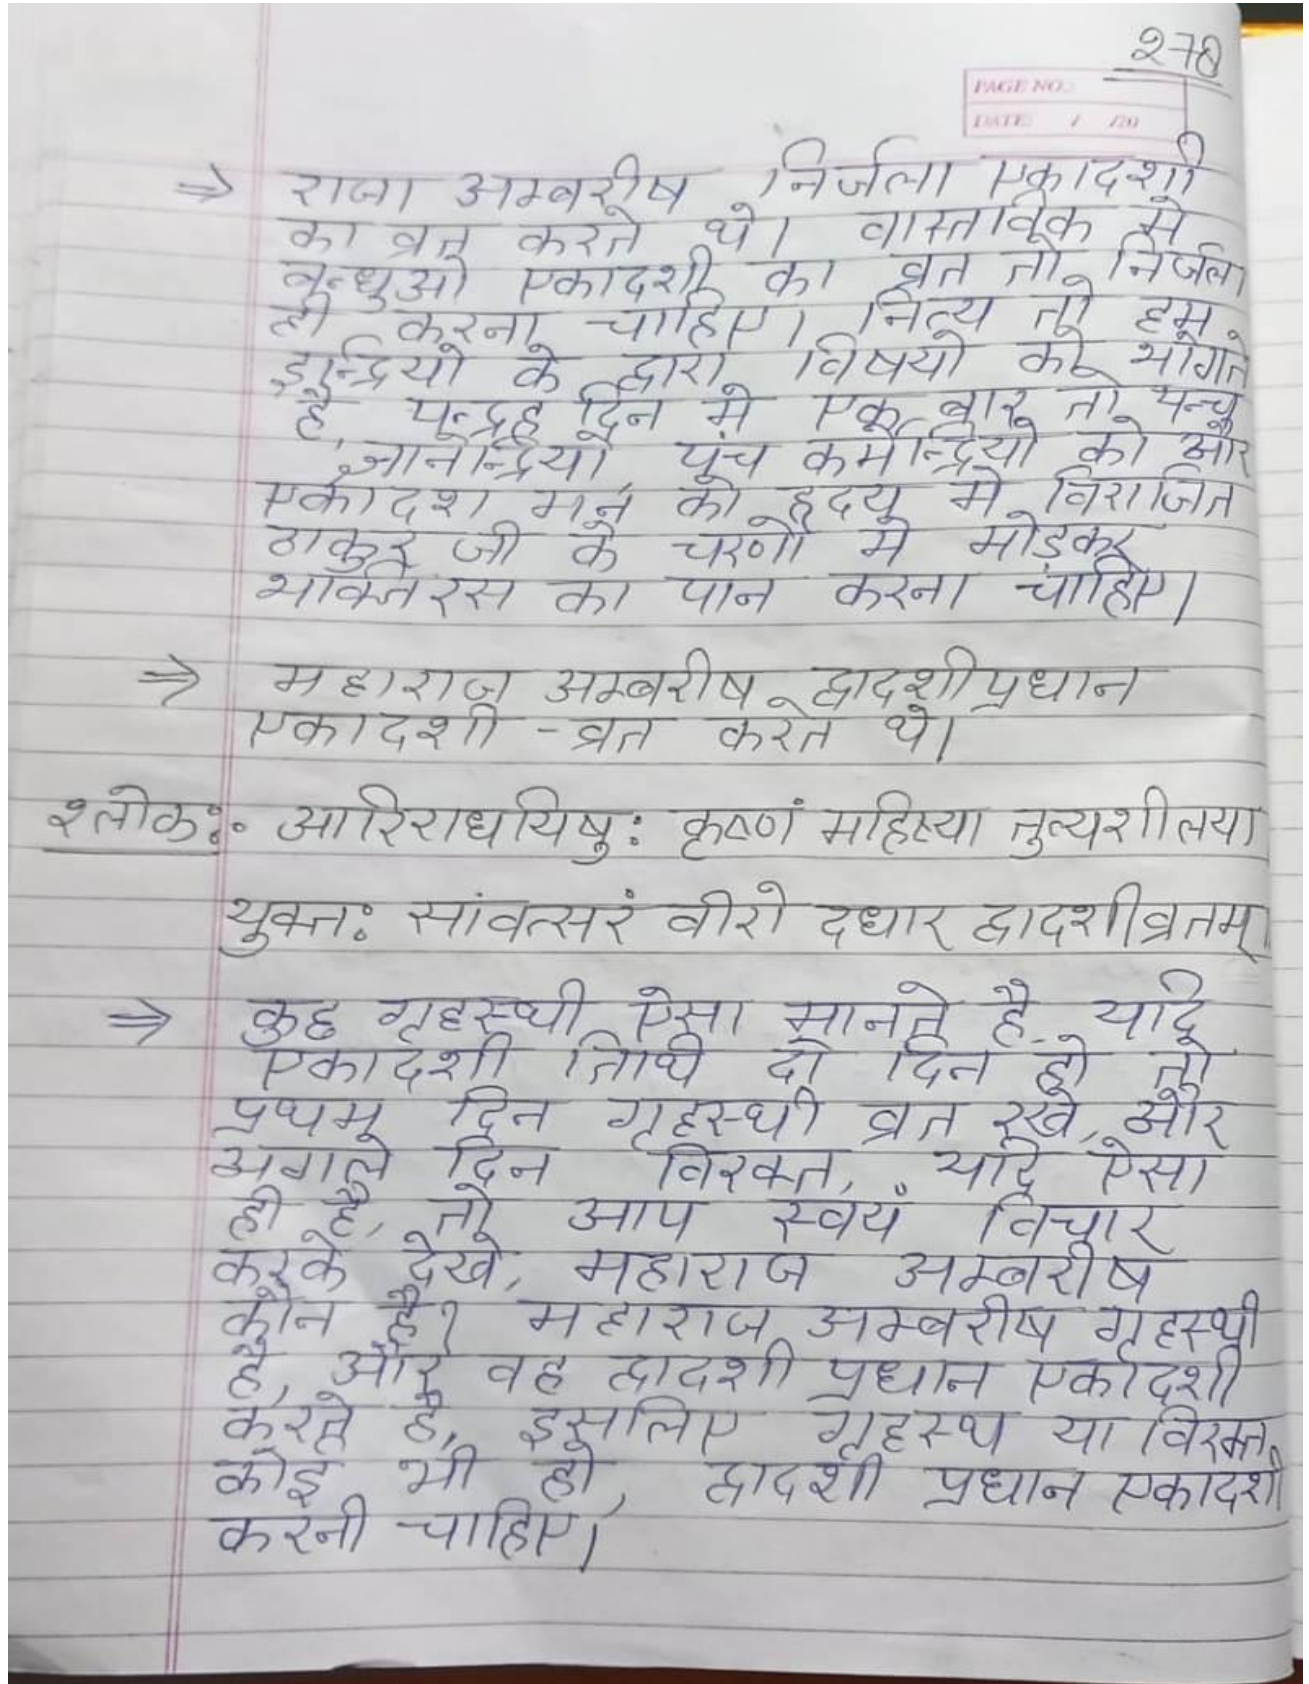 278
PAGE NO.:
DATE: / /20
⇒ राजा अम्बरीष निर्जला एकादशी
का व्रत करते थे। वास्तविक में
बन्धुओ एकादशी का व्रत तो निर्जला
ही करना चाहिए। नित्य तो हम
इन्द्रियो के द्वारा विषयो को भोगते
है, पन्द्रह दिन मे एक बार तो पन्च
ज्ञानेन्द्रियो, पंच कर्मेन्द्रियो को और
एकादश मन को हृदय में विराजित
ठाकुर जी के चरणों में मोड़कर
भक्तिरस का पान करना चाहिए।
⇒ महाराज अम्बरीष द्वादशीप्रधान
एकादशी - व्रत करते थे।
श्लोकः- आरिराधयिषुः कृष्णं महिष्या तुल्यशीलया
युक्तः सांवत्सरं वीरो दधार द्वादशीव्रतम्।
⇒ कुछ गृहस्थी ऐसा मानते है यदि
एकादशी तिथि दो दिन हो तो
प्रथम दिन गृहस्थी व्रत रखे, और
अगले दिन विरक्त, यदि ऐसा
ही है, तो आप स्वयं विचार
करके देखे, महाराज अम्बरीष
कौन है? महाराज अम्बरीष गृहस्थी
है, और वह द्वादशी प्रधान एकादशी
करते है, इसलिए गृहस्थ या विरक्त
कोई भी हो, द्वादशी प्रधान एकादशी
करनी चाहिए।